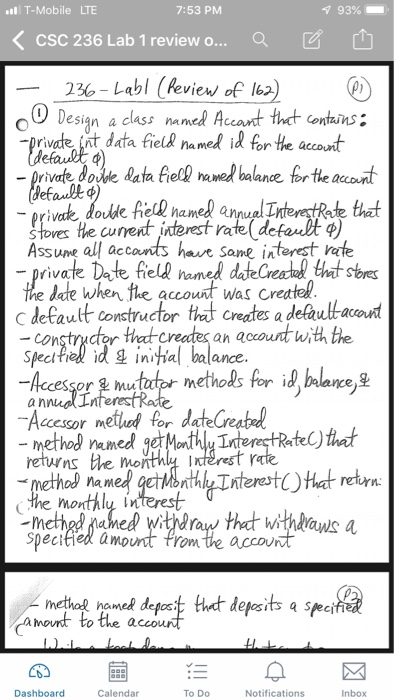 T-Mobile LTE 7:53 PM 93%
CSC 236 Lab 1 review o...
236 - Lab1 (Review of 162) P1
① Design a class named Account that contains:
- private int data field named id for the account
(default φ)
- private double data field named balance for the account
(default φ)
- private double field named annualInterestRate that
stores the current interest rate (default φ)
Assume all accounts have same interest rate
- private Date field named dateCreated that stores
the date when the account was created.
default constructor that creates a default account
- constructor that creates an account with the
specified id & initial balance.
- Accessor & mutator methods for id, balance, &
annualInterestRate
- Accessor method for dateCreated
- method named getMonthlyInterestRate() that
returns the monthly interest rate
- method named getMonthlyInterest() that return:
the monthly interest
- method named withdraw that withdraws a
specified amount from the account
P2
- method named deposit that deposits a specified
amount to the account
Dashboard Calendar To Do Notifications Inbox